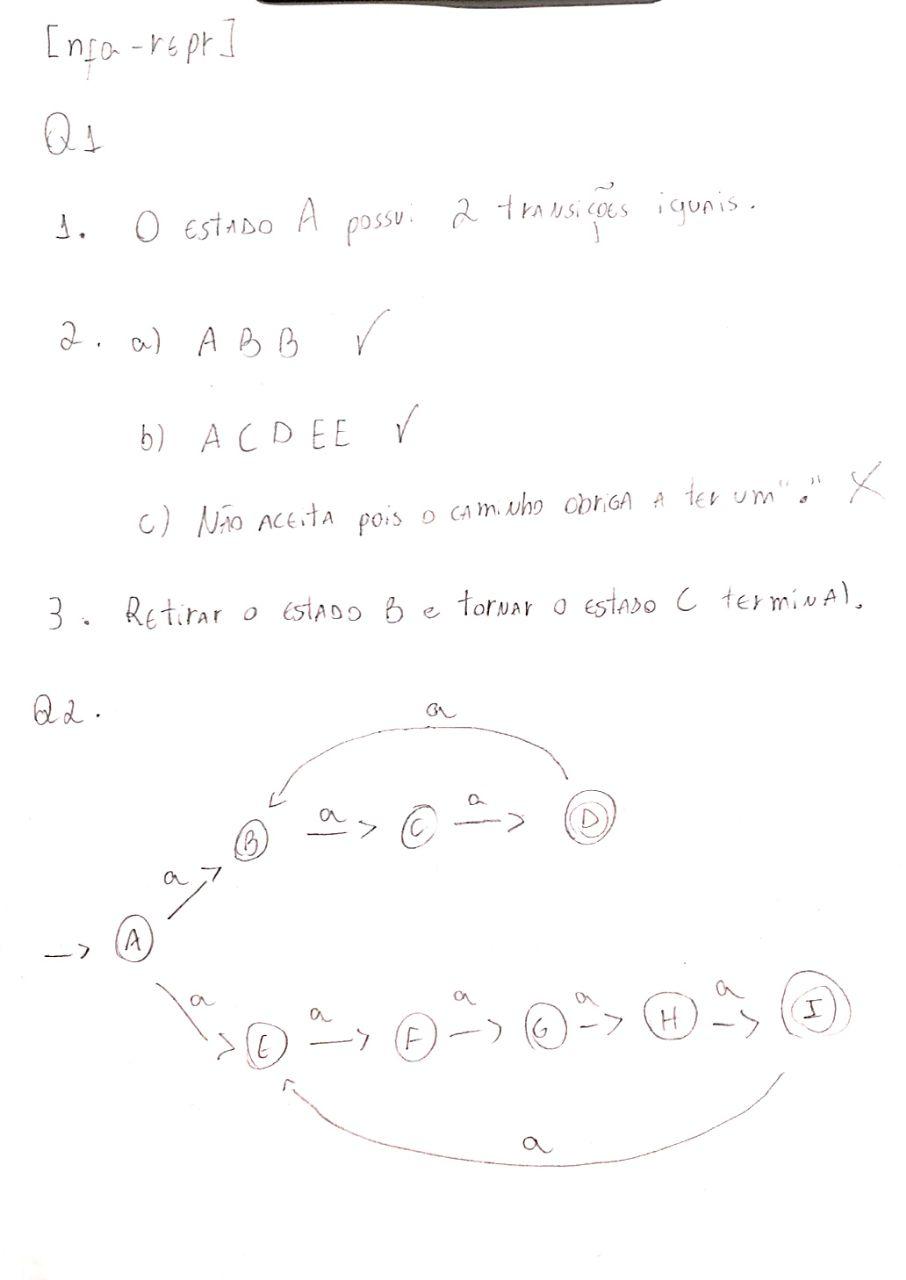 [nfa-repr]
Q1
1. O ESTADO A possui 2 transições iguais.
2. a) A B B ✓
b) A C D E E ✓
c) Não ACEITA pois o caminho obriga a ter um "." X
3. Retirar o estado B e tornar o estado C terminal.
Q2.
a
B a C a D
a
A
a
E a F a G a H a I
a